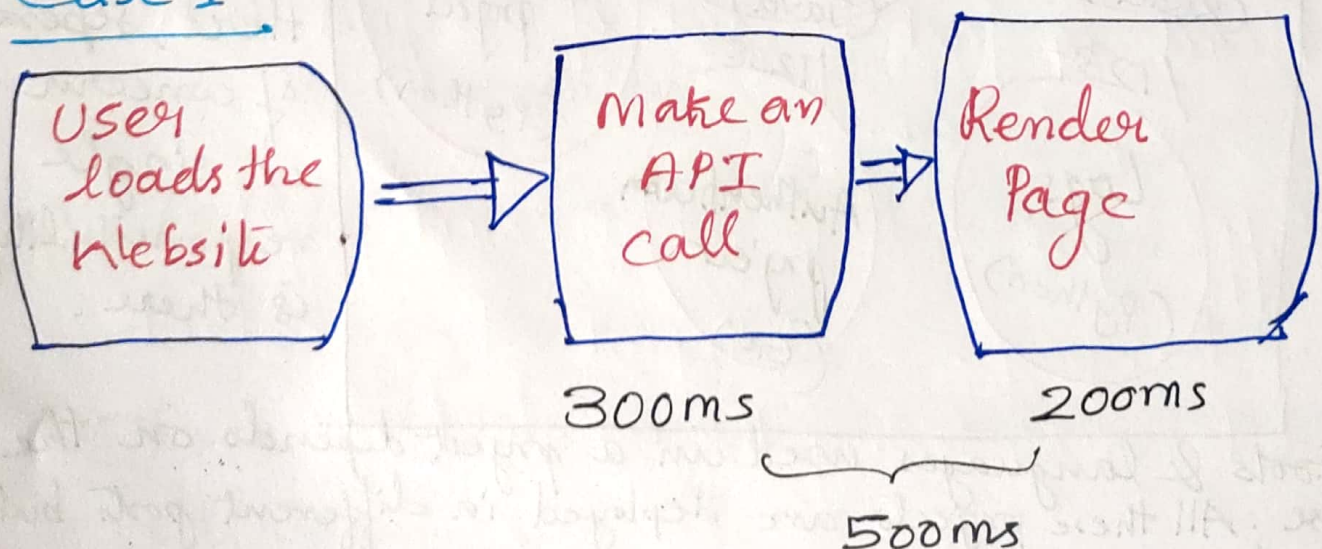 Case 1
User
loads the
Website
Make an
API
call
Render
Page
300ms
200ms
500ms